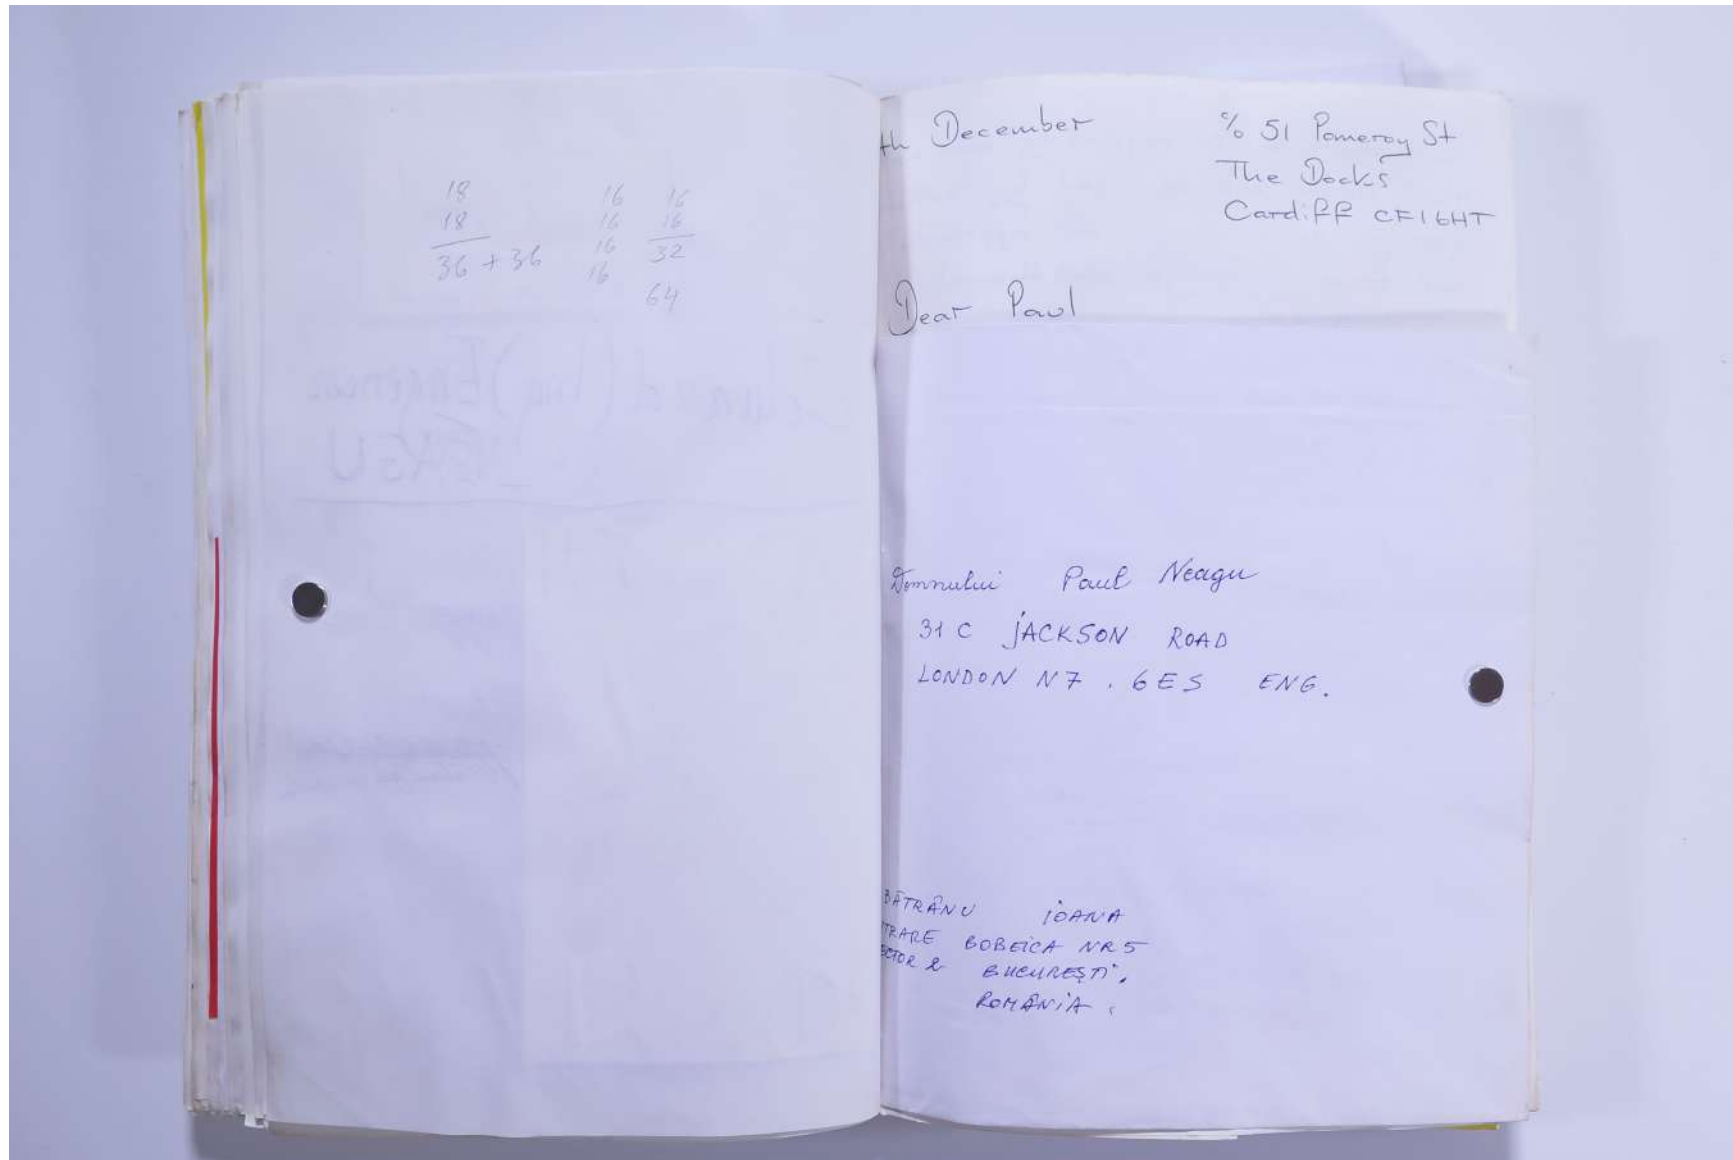 18
18
36 + 36
16
16
16
16
16
16
32
64
th December
c/o 51 Pomeroy St
The Docks
Cardiff CF1 6HT
Dear Paul
Domnului Paul Neagu
31 C JACKSON ROAD
LONDON N7 . 6ES ENG.
BĂTRÂNU IOANA
TRARE BOBEICA NR 5
ECTOR 2 BUCUREŞTI.
ROMÂNIA.